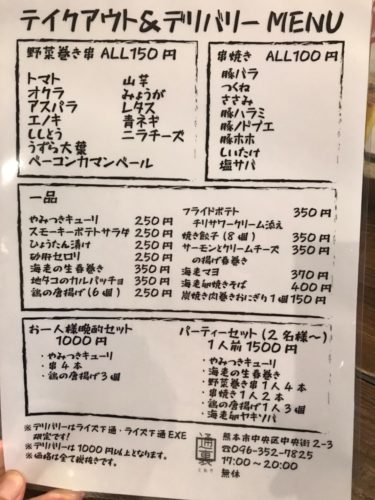 テイクアウト＆デリバリー MENU
野菜巻き串 ALL150円
トマト
オクラ
アスパラ
エノキ
ししとう
うずら大葉
ベーコンカマンベール
山芋
みょうが
レタス
青ネギ
ニラチーズ
串焼き ALL100円
豚バラ
つくね
ささみ
豚ハラミ
豚ノドブエ
豚ホホ
しいたけ
塩サバ
一品
やみつきキューリ 250円
スモーキーポテトサラダ 250円
ひょうたん漬け 250円
砂肝セロリ 250円
海老の生春巻き 350円
地タコのカルパッチョ 350円
鶏の唐揚げ(6個) 350円
フライドポテト 350円
チリサワークリーム添え
焼き餃子(8個) 350円
サーモンとクリームチーズ 350円
の揚げ春巻き
海老マヨ 370円
海老卵焼きそば 400円
炭焼き肉巻きおにぎり1個 150円
お一人様晩酌セット
1000円
・やみつきキューリ
・串4本
・鶏の唐揚げ3個
パーティーセット(2名様〜)
1人前1500円
・やみつきキューリ
・海老の生春巻き
・野菜巻き串1人4本
・串焼き1人2本
・鶏の唐揚げ1人3個
・海老卵ヤキソバ
※デリバリーはライズ下通・ライズ下通EXE
限定です!
※デリバリーは1000円以上となります。
※価格は全て税抜きです。
通裏
熊本市中央区中央街2-3
☎096-352-7825
17:00〜20:00
無休